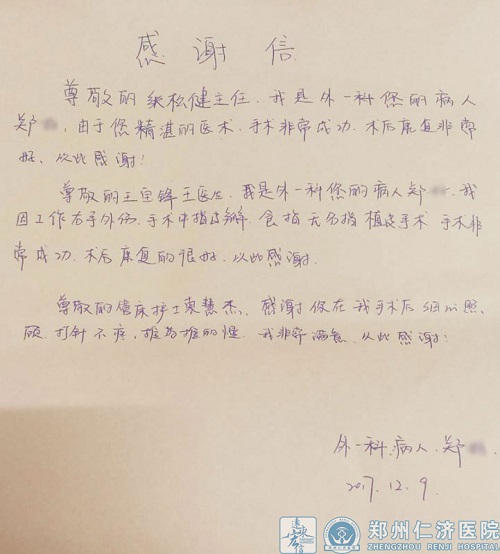 感谢信
尊敬的 松健主任.我是外一科您的病人
郑 ,由于您精湛的医术,手术非常成功.术后康复非常
好、以此感谢!
尊敬的王 锋王医生,我是外一科您的病人郑 .我
因工作右手外伤,手术中指皮瓣,食指无名指植皮手术 手术非
常成功.术后康复的很好.以此感谢.
尊敬的 床护士 慧杰、感谢你在我手术后细心照
顾.打针不疼, 我非常满意.以此感谢!
外一科.病人.郑
2017.12.9.
郑州仁济医院
ZHENGZHOU RENJI HOSPITAL